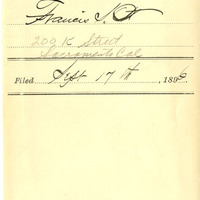 Francis S.
209 K Street
Sacramento Cal
Filed Sept 17th, 1896